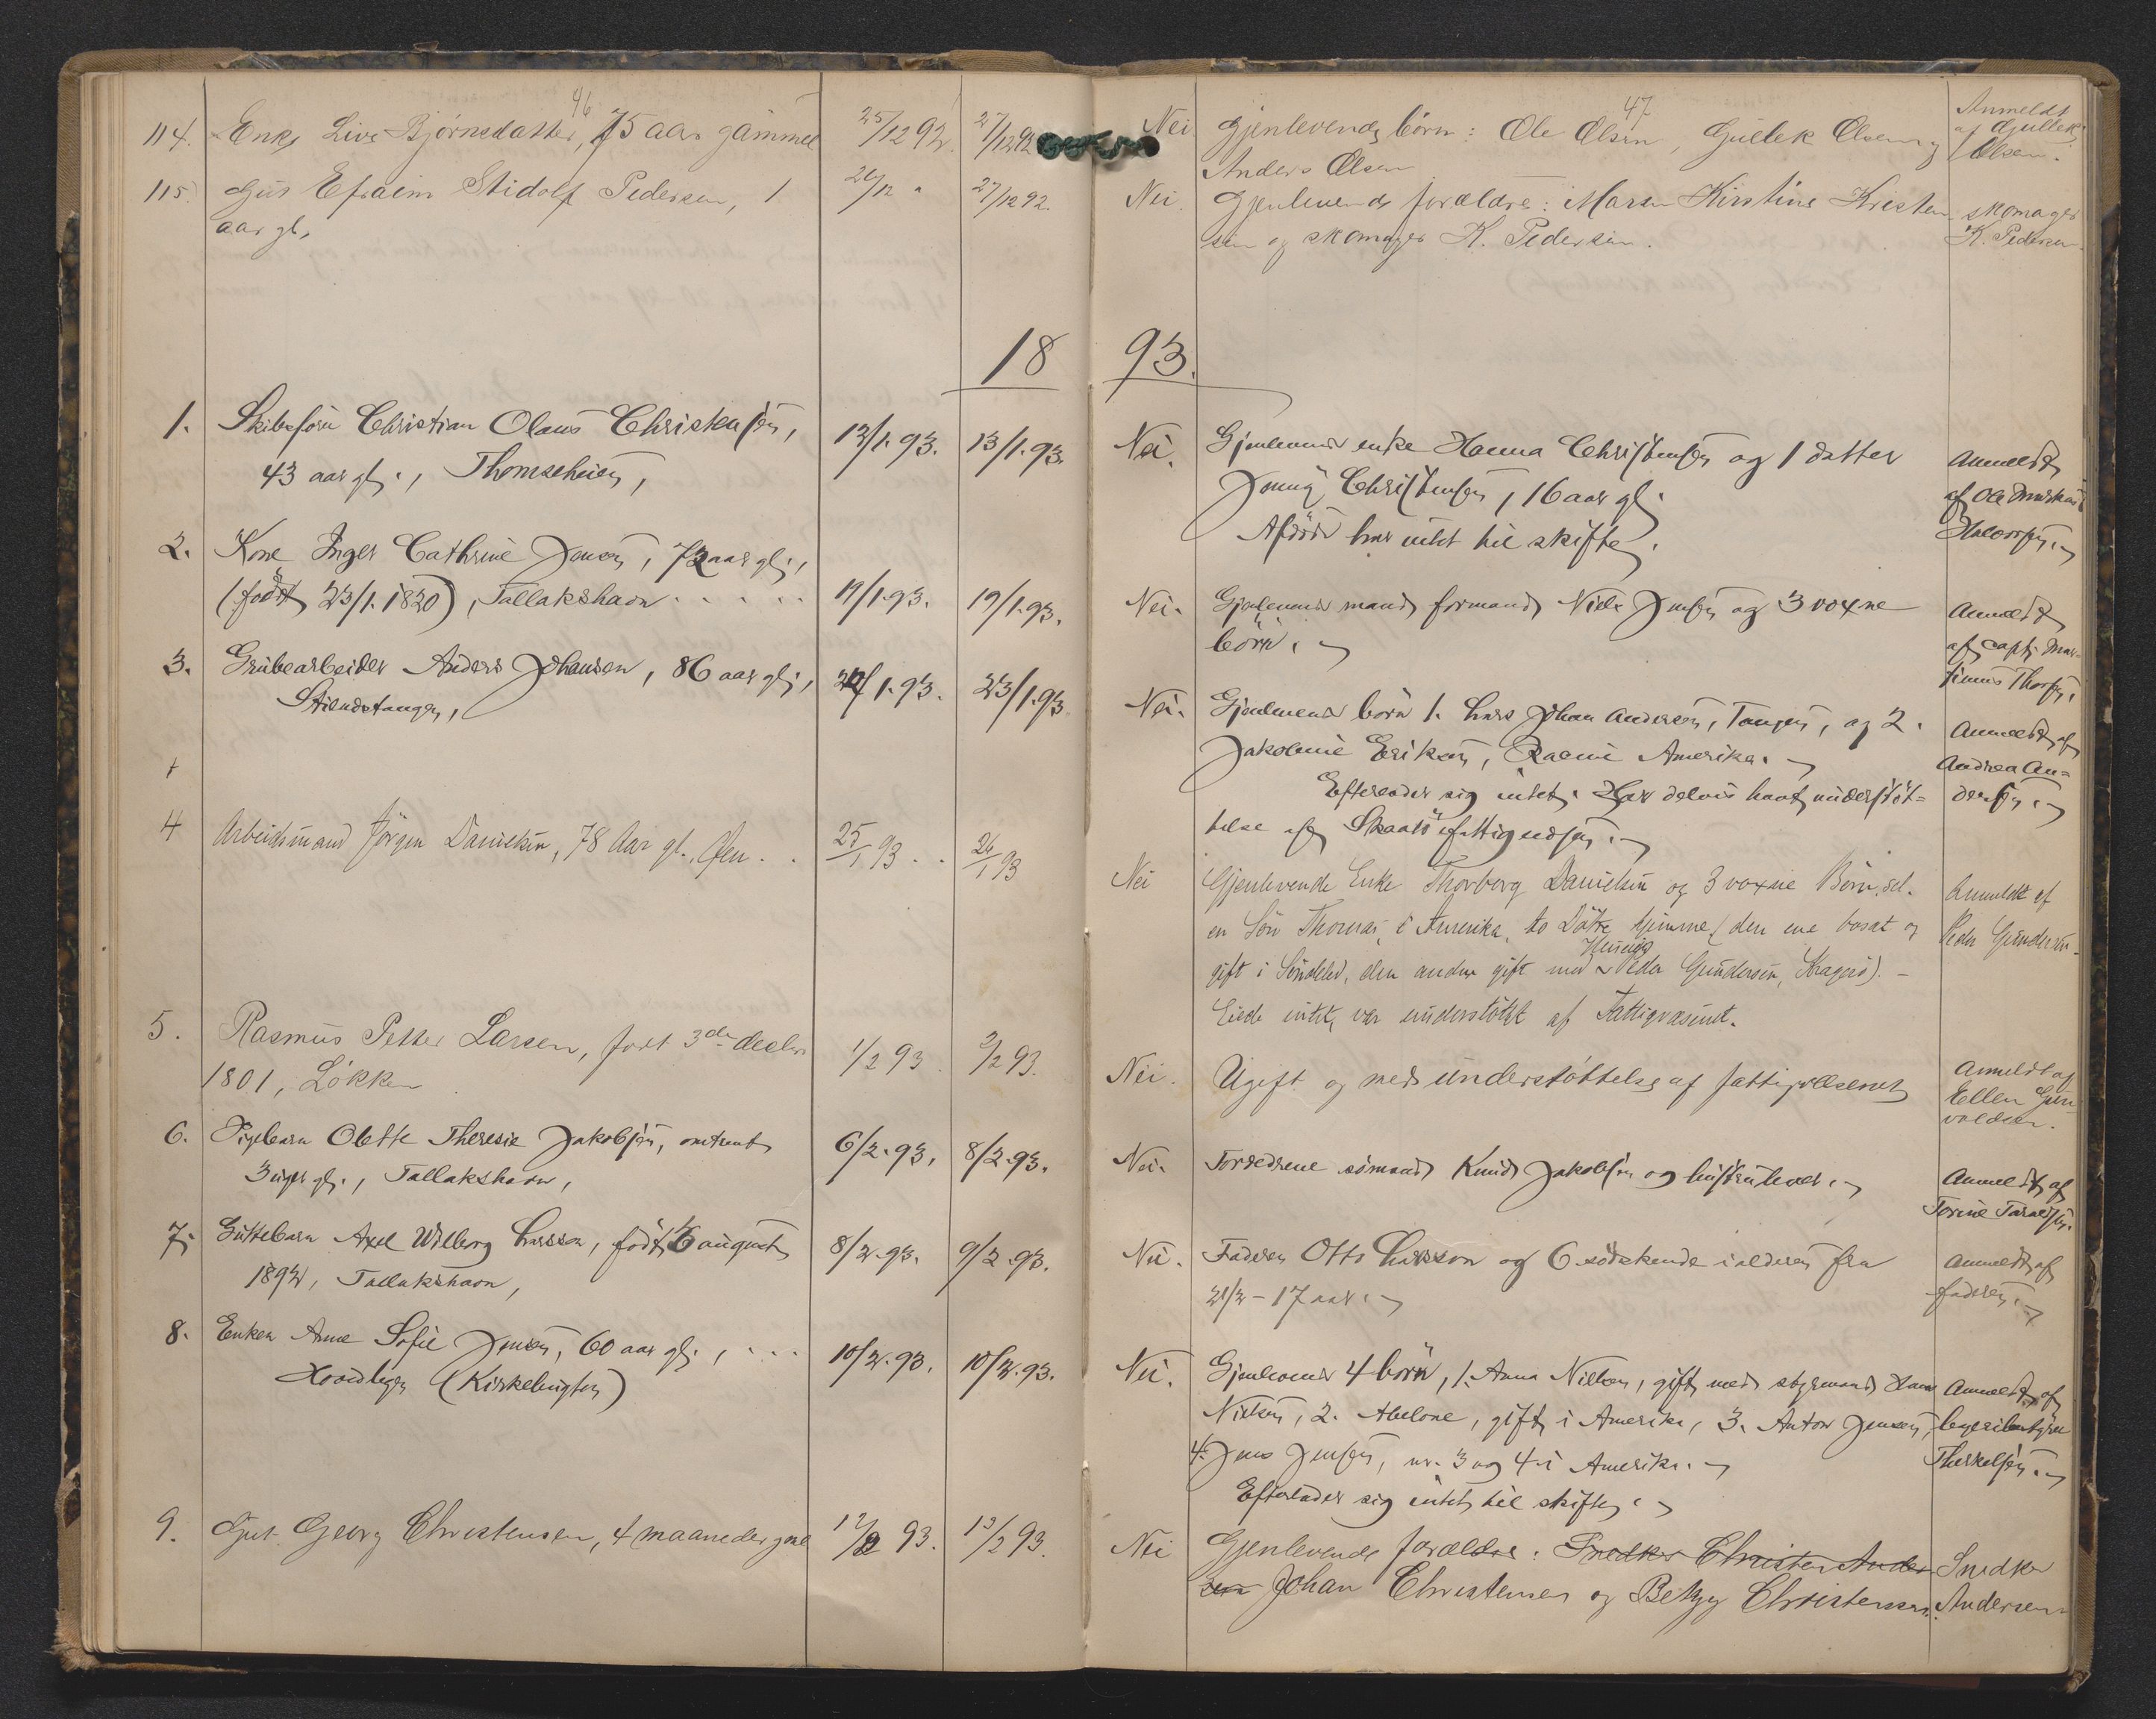 46
114. Enke Live Bjørnsdatter, 75 aar gammel 25/12 92. 27/12 92
115. Gut Efraim Stidolf Pedersen, 1 26/12 " 27/12 92.
aar gl.
18
1. Skibsfører Christian Olaus Christensen, 12/1.93. 13/1.93.
43 aar gl.,
2. Kone Inger Cathrine Jensen, 72 aar gl.,
(født 23/1.1820), Tallakshavn . . . . . 19/1.93. 19/1.93.
3. Grubearbeider Anders Johansen, 86 aar gl., 22/1.93. 23/1.93
Stilnestangen,
4 Arbeidsmand Jörgen Danielsen, 78 Aar gl., Øen . . 25/1 93 . . 26/1 93
5. Rasmus Petter Larsen, født 3de decbr
1801, Løkken 1/2 93. 2/2 93.
6. Pigebarn Olette Theresie Jakobsen, omtrent 6/2.93. 8/2.93.
3 uger gl., Tallakshavn,
7. Guttebarn Axel Wilborg Larsson, født 6 august 8/2.93. 9/2.93.
1892, Tallakshavn,
8. Enken Anne Sofie Jensen, 60 aar gl., . . . 10/2.93. 10/2.93.
(Kirkebugten)
9. Gut. Georg Christensen, 4 maaneder gml 12/2 93. 13/2 93.
47
Nei Gjenlevende børn: Ole Olsen, Gullek Olsen og
Anders Olsen
Anmeldt
af Gullek
Olsen.
Nei. Gjenlevende forældre: Maren Kirstine Kristen-
sen og skomager K. Pedersen.
skomager
K. Pedersen
93.
Nei. Gjenlevende enke Hanna Christensen og 1 datter
Jenny Christensen, 16 aar gl.
Afdöde har intet til skifte.
Anmeldt
af Ole
Halvorsen.
Nei. Gjenlevende mand, formand Niels Jensen og 3 voxne
börn.
Anmeldt
af capt. Mar-
tinius Thorsen.
Nei. Gjenlevende börn 1. Lars Johan Andersen, Tangen, og 2.
Jakobine Eriksen, Racine Amerika.
Efterlader sig intet. Har delvis havt understöt-
telse af Skaatö fattigvæsen.
Anmeldt af
Andrea An-
dersen.
Nei Gjenlevende Enke Thorborg Danielsen og 3 voxne Börn,
en Sön Thomas i Amerika, to Dötre hjemme (den ene bosat og
gift i Söndeled, den anden gift med Peder Gundersen, Kragerö). –
Eiede intet, var understöttet af Fattigvæsenet.
Anmeldt af
Peder Gundersen.
Nei. Ugift og med understøttelse af fattigvæsenet
Anmeldt af
Ellen Gun-
valdsen.
Nei. Forældrene sömand Knud Jakobsen og hustru lever.
Anmeldt af
Torine Taraldsen.
Nei. Faderen Otto Larsson og 6 södskende i alderen fra
2 1/2 – 17 aar.
Anmeldt af
faderen.
Nei. Gjenlevende 4 börn, 1. Anna Nielsen, gift med styrmand Hans
Nielsen, 2. Abelone, gift i Amerika, 3. Anton Jensen,
4. Jens Jensen, nr. 3 og 4 i Amerika.
Efterlader sig intet til skifte.
Anmeldt af
Therkelsen.
Nei Gjenlevende forældre: Snedker Christen Ander
sen Johan Christensen og Betzy Christensen.
Snedker
Andersen